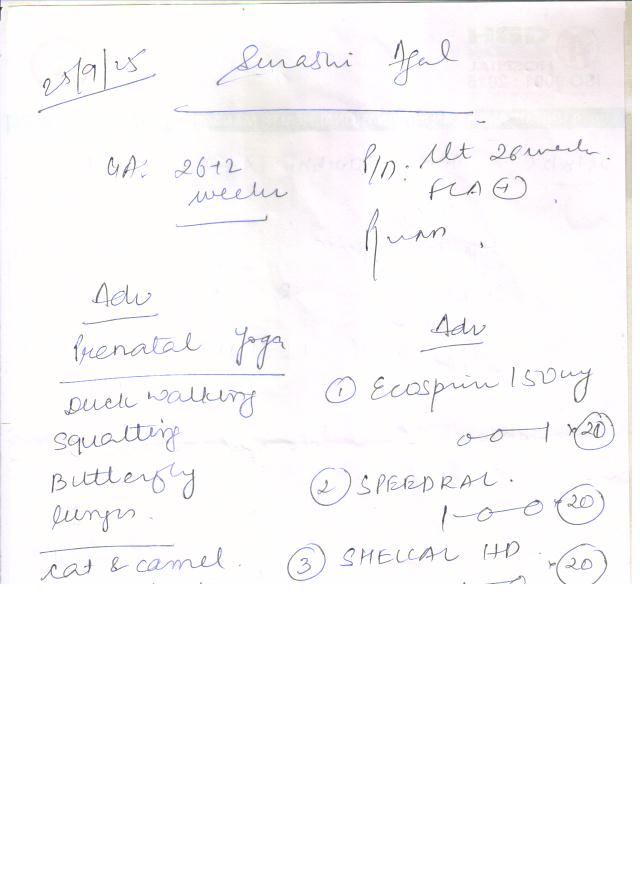 25/9/25
Surashi Agal
GA: 26+2
weeks
P/A: Ut 26 weeks.
FCA +
Adv
Prenatal Yoga
Duck walking
Squatting
Butterfly
lunges.
cat & camel.
Adv
① Ecosprin 150mg
0 0 — 1 × 20
② SPEEDRAL.
1 — 0 — 0 × 20
③ SHELCAL HD
× 20